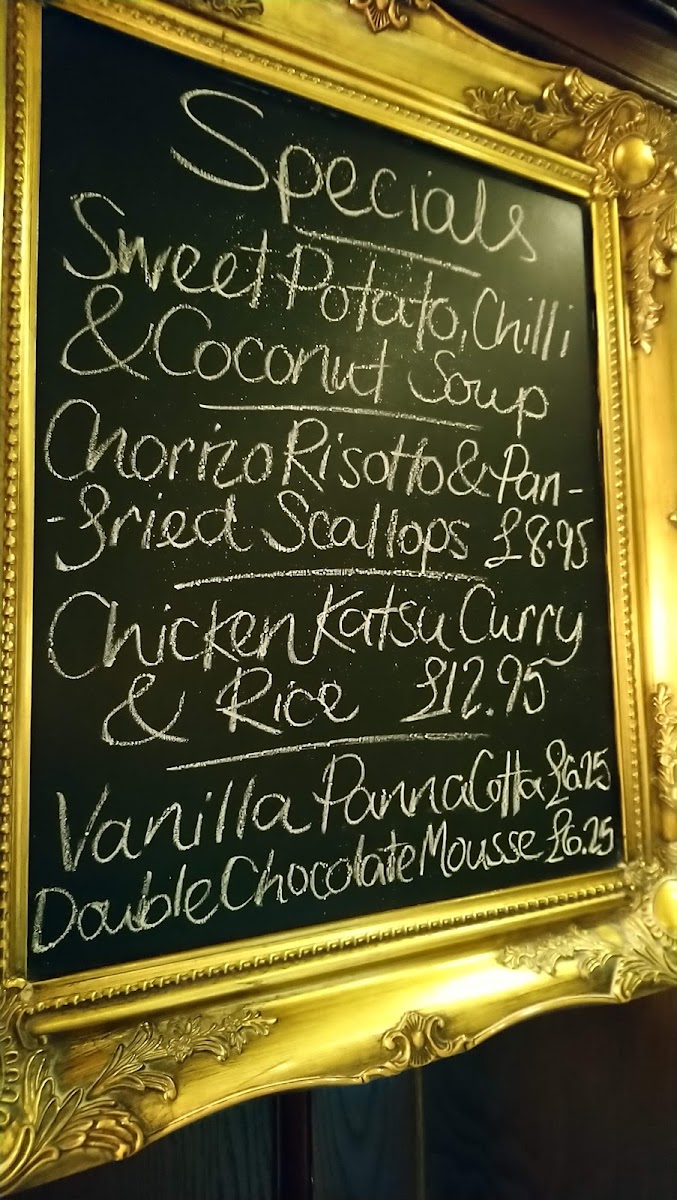 Specials
Sweet Potato, Chilli
& Coconut Soup
Chorizo Risotto & Pan-
-fried Scallops £8.95
Chicken Katsu Curry
& Rice £12.95
Vanilla Panna Cotta £6.25
Double Chocolate Mousse £6.25